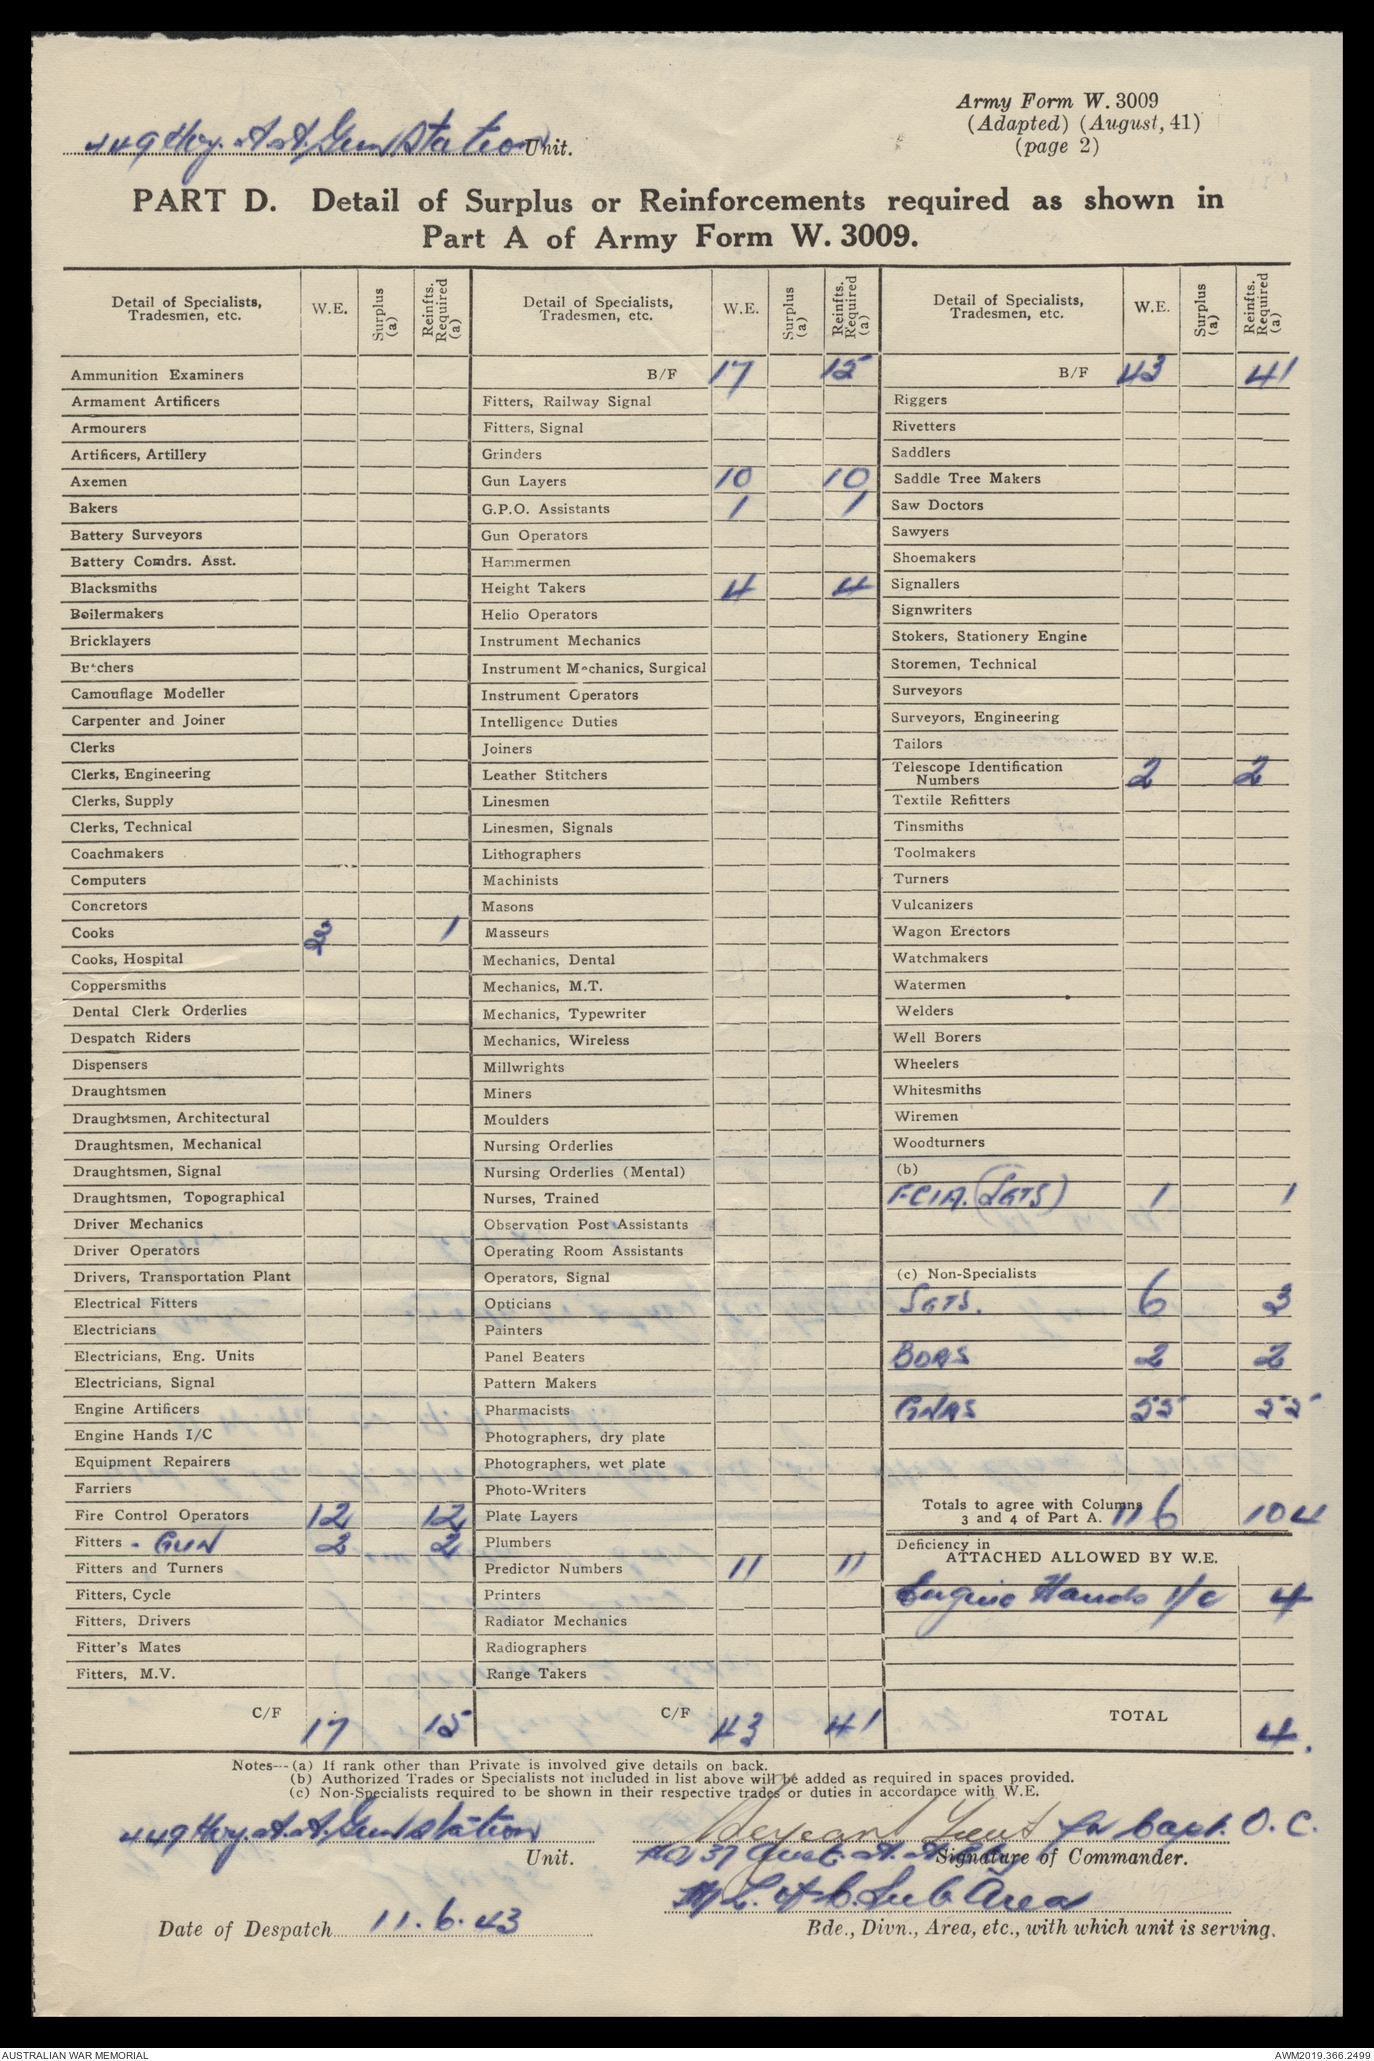 449 Hvy. A.A. Gun Station Unit.
Army Form W. 3009
(Adapted) (August, 41)
(page 2)
PART D. Detail of Surplus or Reinforcements required as shown in
Part A of Army Form W. 3009.
Detail of Specialists, Tradesmen, etc. W.E. Surplus (a) Reinfts. Required (a)
Ammunition Examiners
Armament Artificers
Armourers
Artificers, Artillery
Axemen
Bakers
Battery Surveyors
Battery Comdrs. Asst.
Blacksmiths
Boilermakers
Bricklayers
Butchers
Camouflage Modeller
Carpenter and Joiner
Clerks
Clerks, Engineering
Clerks, Supply
Clerks, Technical
Coachmakers
Computers
Concretors
Cooks 1
Cooks, Hospital
Coppersmiths
Dental Clerk Orderlies
Despatch Riders
Dispensers
Draughtsmen
Draughtsmen, Architectural
Draughtsmen, Mechanical
Draughtsmen, Signal
Draughtsmen, Topographical
Driver Mechanics
Driver Operators
Drivers, Transportation Plant
Electrical Fitters
Electricians
Electricians, Eng. Units
Electricians, Signal
Engine Artificers
Engine Hands I/C
Equipment Repairers
Farriers
Fire Control Operators 12 12
Fitters - GUN 2 2
Fitters and Turners
Fitters, Cycle
Fitters, Drivers
Fitter's Mates
Fitters, M.V.
C/F 17 15
Detail of Specialists, Tradesmen, etc. W.E. Surplus (a) Reinfts. Required (a)
B/F 17 15
Fitters, Railway Signal
Fitters, Signal
Grinders
Gun Layers 10 10
G.P.O. Assistants 1 1
Gun Operators
Hammermen
Height Takers 4 4
Helio Operators
Instrument Mechanics
Instrument Mechanics, Surgical
Instrument Operators
Intelligence Duties
Joiners
Leather Stitchers
Linesmen
Linesmen, Signals
Lithographers
Machinists
Masons
Masseurs
Mechanics, Dental
Mechanics, M.T.
Mechanics, Typewriter
Mechanics, Wireless
Millwrights
Miners
Moulders
Nursing Orderlies
Nursing Orderlies (Mental)
Nurses, Trained
Observation Post Assistants
Operating Room Assistants
Operators, Signal
Opticians
Painters
Panel Beaters
Pattern Makers
Pharmacists
Photographers, dry plate
Photographers, wet plate
Photo-Writers
Plate Layers
Plumbers
Predictor Numbers 11 11
Printers
Radiator Mechanics
Radiographers
Range Takers
C/F 43 41
Detail of Specialists, Tradesmen, etc. W.E. Surplus (a) Reinfts. Required (a)
B/F 43 41
Riggers
Rivetters
Saddlers
Saddle Tree Makers
Saw Doctors
Sawyers
Shoemakers
Signallers
Signwriters
Stokers, Stationery Engine
Storemen, Technical
Surveyors
Surveyors, Engineering
Tailors
Telescope Identification
Numbers 2 2
Textile Refitters
Tinsmiths
Toolmakers
Turners
Vulcanizers
Wagon Erectors
Watchmakers
Watermen
Welders
Well Borers
Wheelers
Whitesmiths
Wiremen
Woodturners
(b)
F.C.I.A. (SGTS) 1 1
(c) Non-Specialists
SGTS. 6 3
BDRS 2 2
GNRS 55 55
Totals to agree with Columns
3 and 4 of Part A. 116 104
Deficiency in
ATTACHED ALLOWED BY W.E.
Engine Hands I/C 4
TOTAL 4.
Notes—(a) If rank other than Private is involved give details on back.
(b) Authorized Trades or Specialists not included in list above will be added as required in spaces provided.
(c) Non-Specialists required to be shown in their respective trades or duties in accordance with W.E.
449 Hvy. A.A. Gun Station
Unit.
Lieut for Capt. O.C.
37 Aust. A.A. Bty
Signature of Commander.
L. of C. Sub Area
Date of Despatch 11.6.43
Bde., Divn., Area, etc., with which unit is serving.
AUSTRALIAN WAR MEMORIAL
AWM2019.366.2499